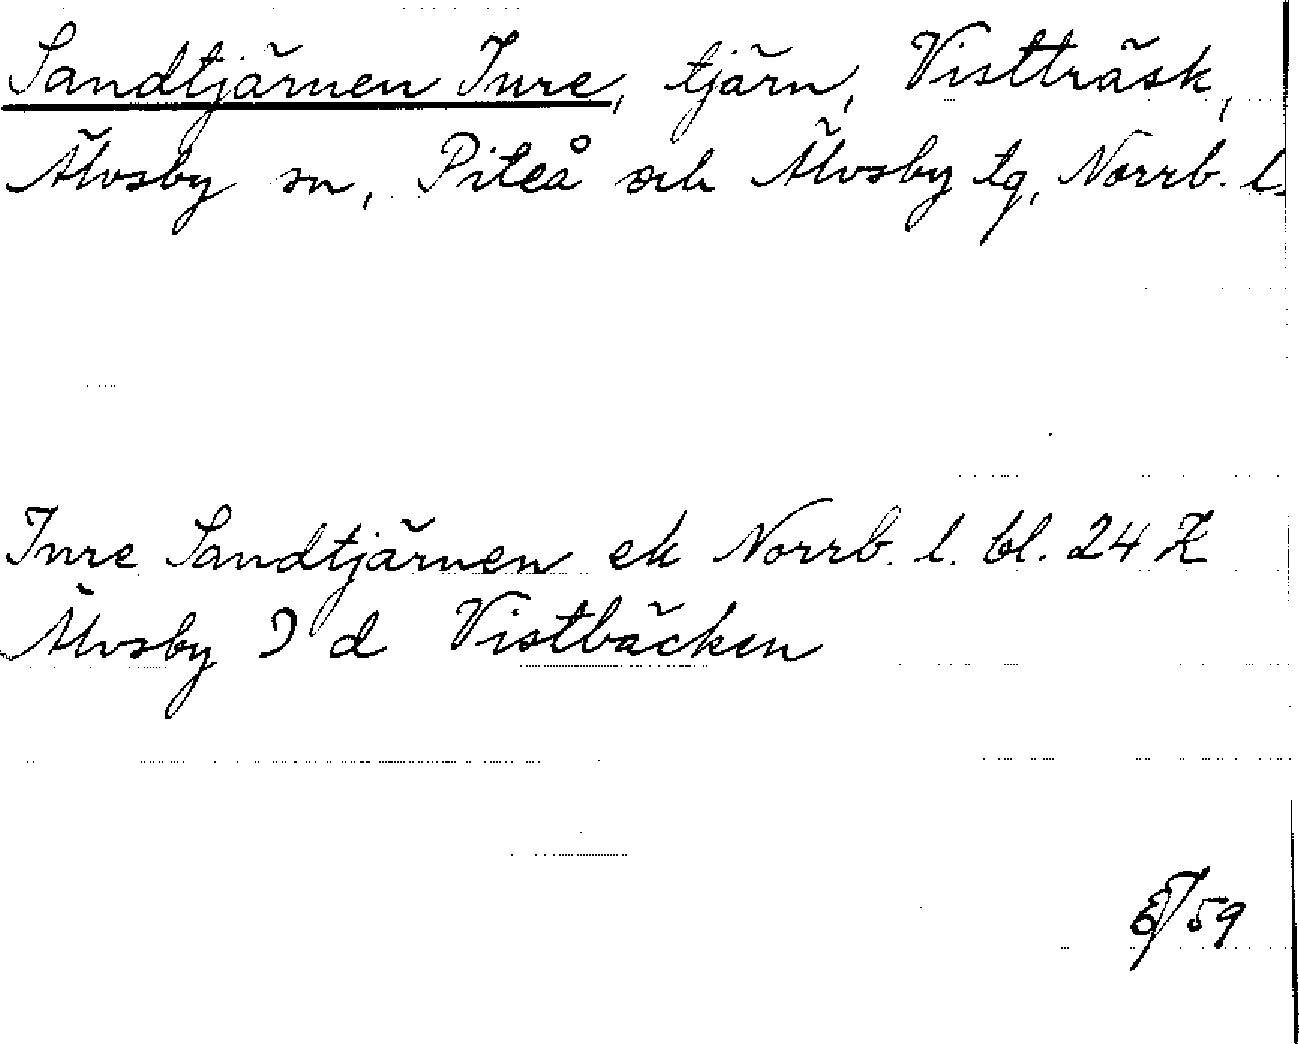 Sandtjärnen Inre, tjärn, Vistträsk,
Älvsby sn, Piteå och Älvsby tg, Norrb. l.
Inre Sandtjärnen ek Norrb. l. bl. 24 K
Älvsby I d Vistbäcken
59